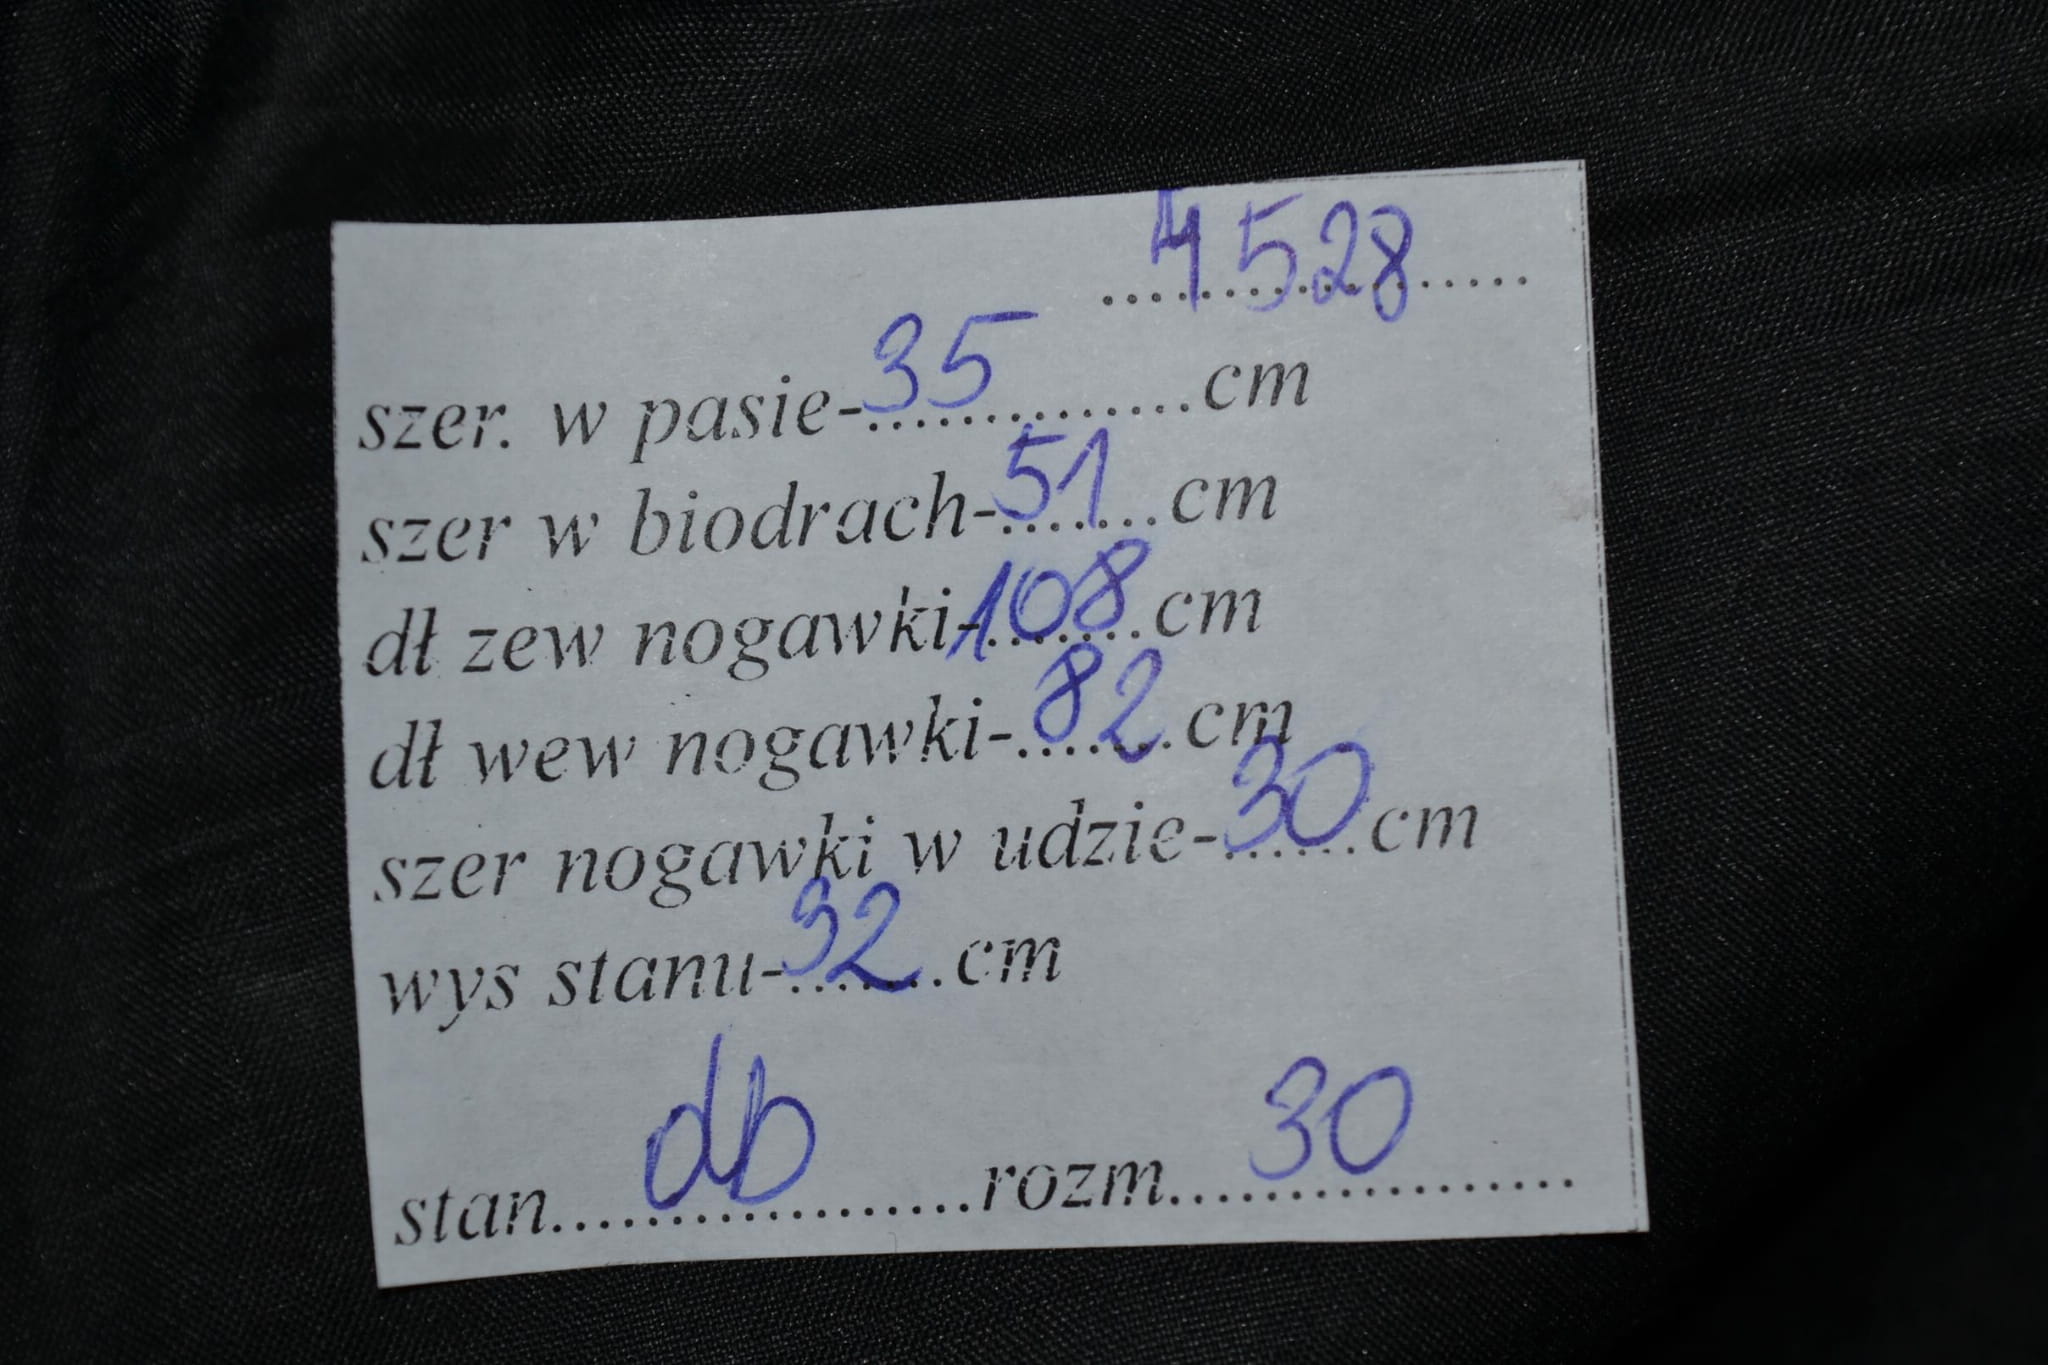 4528
szer. w pasie-35.............cm
szer w biodrach-51.......cm
dł zew nogawki-108.......cm
dł wew nogawki-82.......cm
szer nogawki w udzie-30......cm
wys stanu-32.......cm
stan....db....rozm....30....